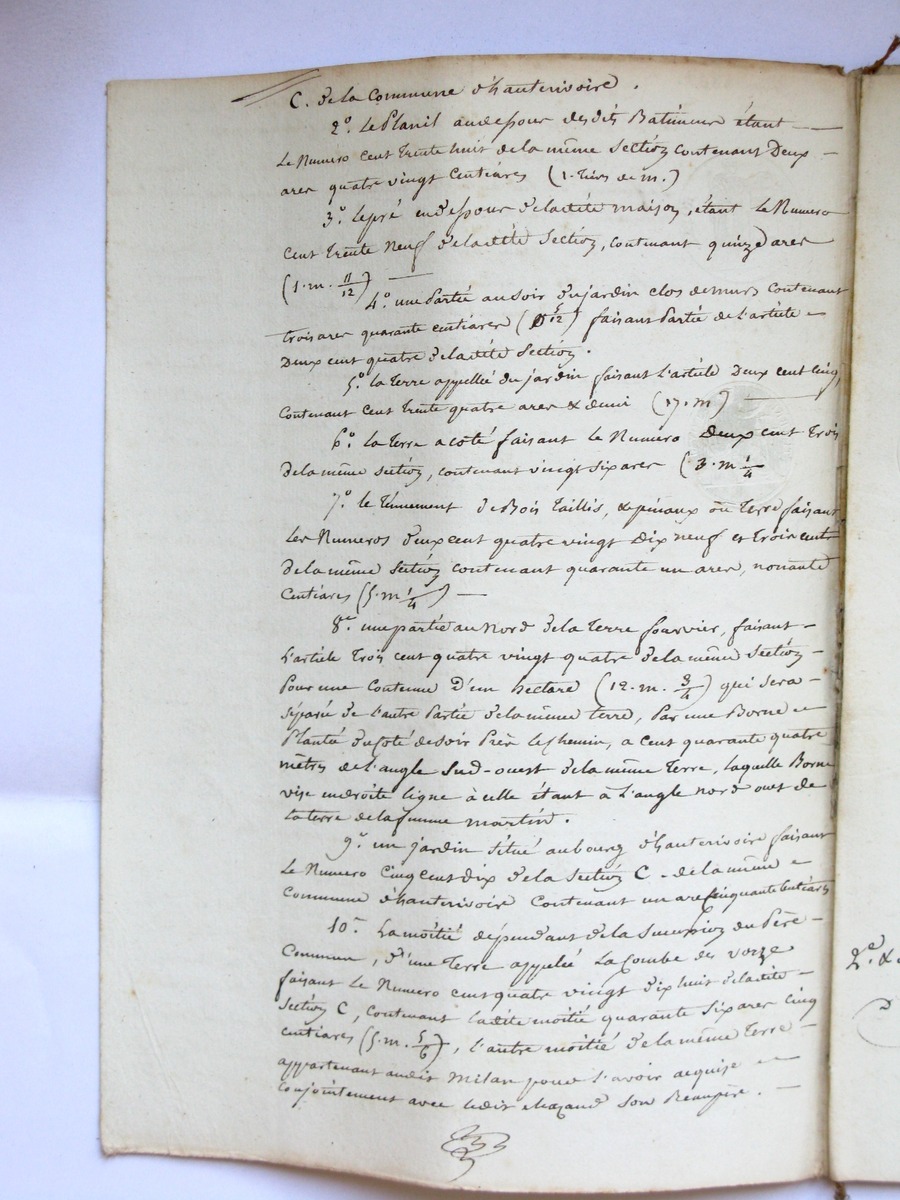 C. de la Commune d'hauterivoire.
2° Le Planil audessous desdits Batimens étant
Le Numero cent trente huit de la même Section contenant Deux
ares quatre vingt Centiares (1. tiers de m.)
3° le pré endessous de ladite maison, étant Le Numero
Cent trente neuf de ladite Section, contenant quinze ares
(1. m. 11/12)
4° une Partie au soir du jardin clos de murs contenant
trois ares quarante centiares (5/12) faisant Partie de L'article
Deux cent quatre de ladite Section.
5° la Terre appellée du jardin faisant L'article Deux cent cinq
Contenant Cent trente quatre ares & demi (17. m)
6° la terre a coté faisant Le Numero Deux cent trois
de la même section, contenant vingt six ares (3. m 1/4
7° le Tennement de Bois Taillis, & pinaux ou Terre faisant
Les Numeros deux cent quatre vingt Dix neuf et trois cents
de la même Section contenant quarante un ares, nonante
Centiares (5. m 1/4)
8° une partie au Nord de la Terre fournier, faisant
L'article trois cent quatre vingt quatre de la même Section
Pour une Contenue D'un hectare (12. m. 3/4) qui sera
séparée de l'autre Partie de la même terre, Par une Borne
Plantée du coté de soir Près le chemin, a cent quarante quatre
mètres de l'angle Sud-ouest de la même Terre, laquelle Borne
vise en droite ligne à celle étant à L'angle nord ouest de
la terre de la femme martin.
9° un jardin situé au bourg d'hauterivoire faisant
Le Numero Cinq cent dix de la Section C de la même
Commune d'hauterivoire Contenant un are Cinquante Centiares
10° La moitié dépendant de la Succession du Père
Commun, d'une Terre appelée La Combe des vorze
faisant Le Numero cent quatre vingt dix huit de ladite
Section C, Contenant ladite moitié quarante six ares Cinq
centiares (5. m. 5/6), l'autre moitié de la même Terre
appartenant audit Milan pour l'avoir acquise
Conjointement avec ledit Son Beaupère.
2e &